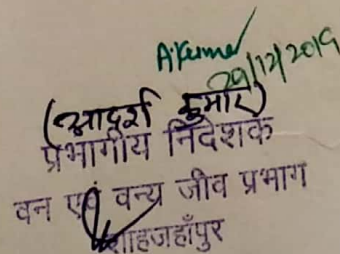 A.Kumar
29/12/2019
(आदर्श कुमार)
प्रभागीय निदेशक
वन एवं वन्य जीव प्रभाग
शाहजहाँपुर